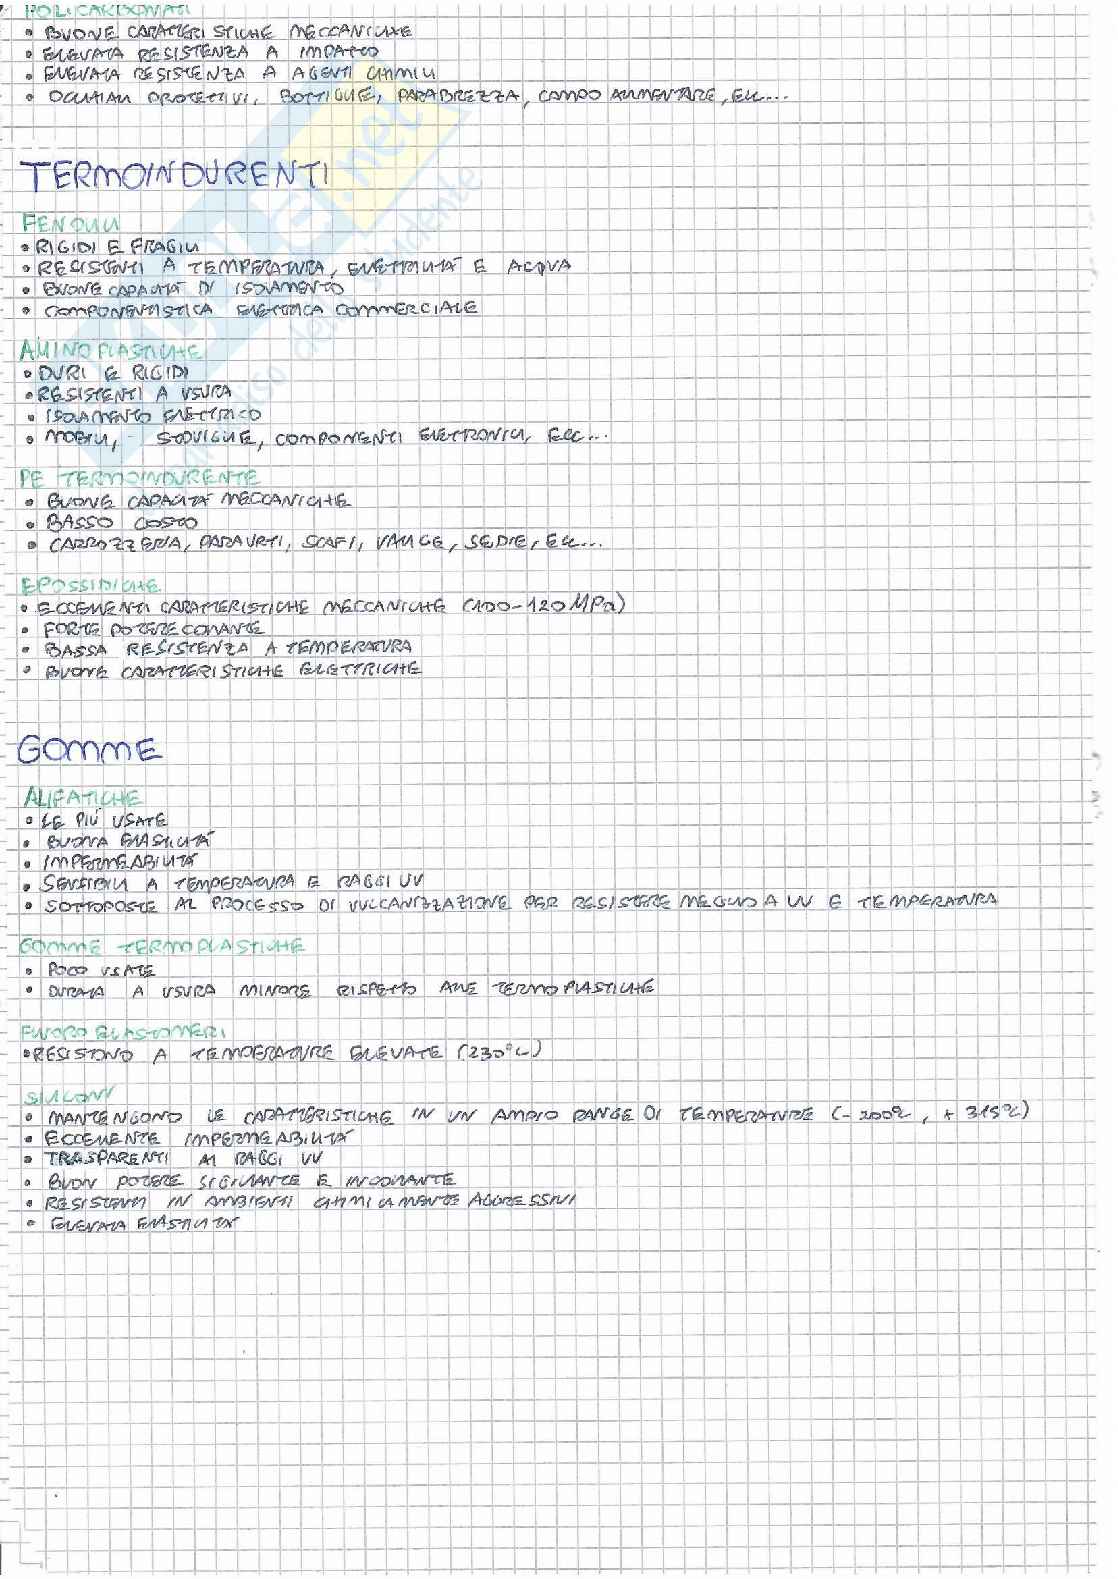 POLICARBONATI
• BUONE CARATTERISTICHE MECCANICHE
• ELEVATA RESISTENZA A IMPATTO
• ELEVATA RESISTENZA A AGENTI CHIMICI
• OCCHIALI PROTETTIVI, BOTTIGLIE, PARABREZZA, CAMPO ALIMENTARE, ECC...
TERMOINDURENTI
FENOLICI
• RIGIDI E FRAGILI
• RESISTENTI A TEMPERATURA, ELETTRICITÀ E ACQUA
• BUONE CAPACITÀ DI ISOLAMENTO
• COMPONENTISTICA ELETTRICA COMMERCIALE
AMINOPLASTICHE
• DURI E RIGIDI
• RESISTENTI A USURA
• ISOLAMENTO ELETTRICO
• MOBILI, STOVIGLIE, COMPONENTI ELETRONICI, ECC...
PE TERMOINDURENTE
• BUONE CAPACITÀ MECCANICHE
• BASSO COSTO
• CARROZZERIA, PARAURTI, SCAFI, VALIGE, SEDIE, ECC...
EPOSSIDICHE
• ECCELLENTI CARATTERISTICHE MECCANICHE (100-120 MPa)
• FORTE POTERE COLLANTE
• BASSA RESISTENZA A TEMPERATURA
• BUONE CARATTERISTICHE ELETTRICHE
GOMME
ALIFATICHE
• LE PIÙ USATE
• BUONA ELASTICITÀ
• IMPERMEABILITÀ
• SENSIBILI A TEMPERATURA E RAGGI UV
• SOTTOPOSTE AL PROCESSO DI VULCANIZZAZIONE PER RESISTERE MEGLIO A UV E TEMPERATURA
GOMME TERMOPLASTICHE
• POCO USATE
• DURATA A USURA MINORE RISPETTO ALLE TERMOPLASTICHE
FLUOROELASTOMERI
• RESISTONO A TEMPERATURE ELEVATE (230°C)
SILICONI
• MANTENGONO LE CARATTERISTICHE IN UN AMPIO RANGE DI TEMPERATURE (-200°C, +315°C)
• ECCELLENTE IMPERMEABILITÀ
• TRASPARENTI AI RAGGI UV
• BUON POTERE SIGILLANTE E INCOLLANTE
• RESISTENTI IN AMBIENTI CHIMICAMENTE AGGRESSIVI
• ELEVATA ELASTICITÀ